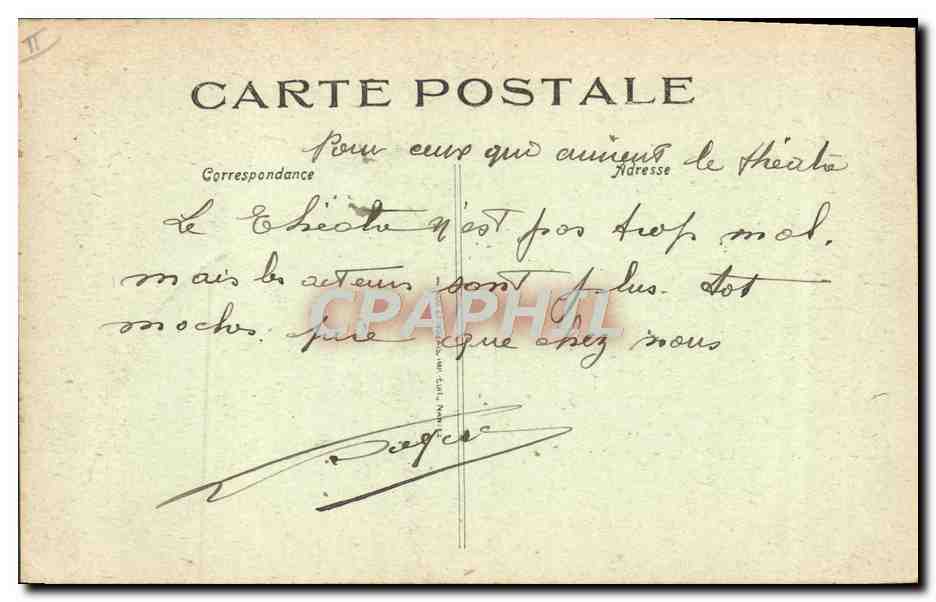 II
CARTE POSTALE
Pour ceux qui aiment le théatre
Correspondance
Adresse
Le Théatre n'est pas trop mal.
mais les acteurs sont plus. tot
moches. pire que chez nous
CPAPHIL